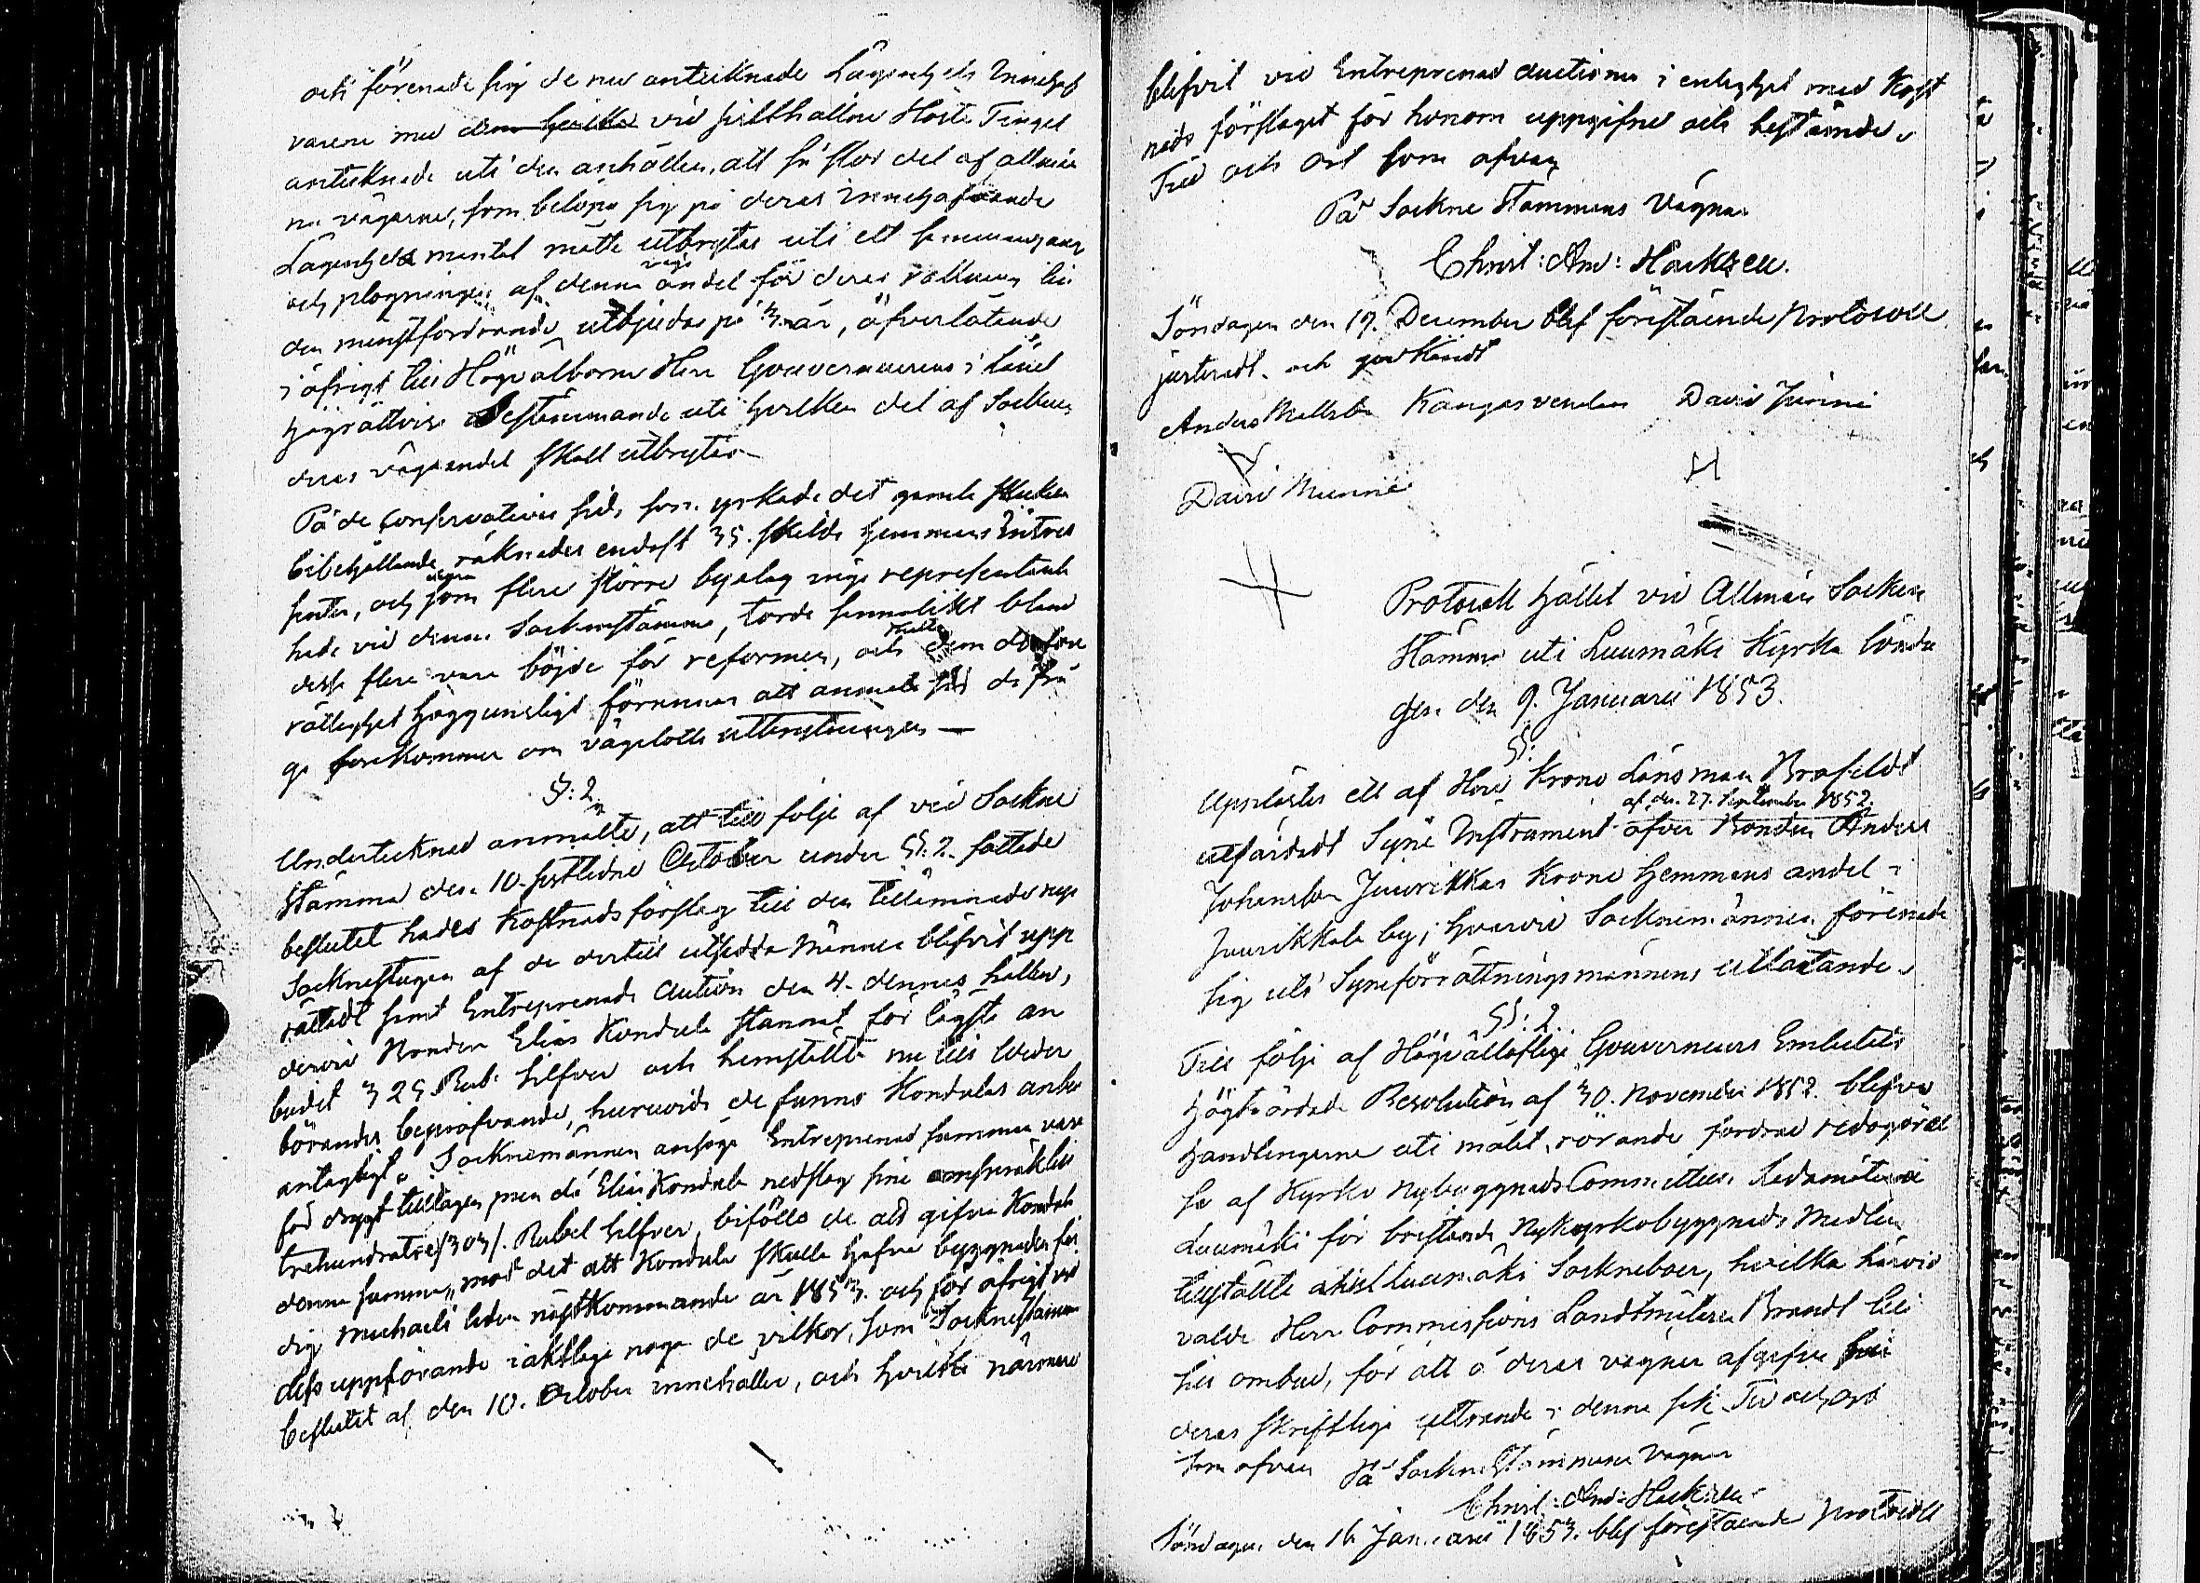 och förenade sig de nu antecknade Lägenhets Innehaf
varena med dem hvilka vid sitthållne Höste Tinget
antecknade uti den anhållan, att så stor del af allmän
na vägarne, som belöpa sig på deras innehafvande
Lägenhets mantal måtte utbrytas uti ett sammanhang
och plogningen af denna vägs andel för deras räkning till
den minstfordrande utbjudas på 3. år, öfverlåtande
i öfrigt till Högvälborne Herr Gouverneurens i länet
högrättvisa bestämmande uti hvilken del af Socknen
deras vägaandel skall utbrytas.—
På de conservatives sida som yrkade det gamla skickets
bibehållande räknades endast 35. skilda hemmans Intres
senter, och som flere större byalag voro representerade
hade vid denna Sockenstämma, torde sannolikt bland
desse flere vara böjde för reformen, och skulle dem derföre
rättighet höggunstligt förunnas att anmäla sig då frå
ga förekommer om vägelotts utbrytningen —
§: 2.
Undertecknad anmälte, att till följe af vid Sockne
Stämma den 10. sistledne October under §: 2. fattade
beslutet hades Kostnadsförslag till den tillämnade nya
Socknestugan af de dertill utsedda Männer blifvit upp
rättadt samt Entreprenads Auction den 4. dennes hållen,
dervid Bonden Elias Kondula stannat för lägsta an
budet 325 Rub: Silfver och hemställde nu till veder
börandes bepröfvande, huruvida de funno Kondulas anbu
antagligt. Socknemännen ansågo Entreprenad summan vara
för drygt tilltagen, men då Elias Kondula nedslog sine anspråk till
trehundratre /303/. Rubel Silfver, biföllo de att gifva Kondula
denna summa, med det att Kondula skulle hafva byggnaden fär
dig Michaeli tiden nästkommande år 1853. och för öfrigt vid
dess uppförande iakttaga noga de vilkor, som Socknestämmo
beslutet af den 10. October innehåller, och hvilka närmare
blifvit vid Entreprenad auctionen i enlighet med Kost
nads förslaget för honom uppgifne och bestämde.
Tid och Ort som ofvan
På Sockne Stämmans Vägnar
Christ: And: Hackzell.
Söndagen den 19. December blef förestående Protocoll
justeradt och godkändt
Anders Mattsson Kangasvendes David Junni
David Munne
Protocoll hållet vid Allmän Socken
Stämma uti Luumäki Kyrka Sönda
gen den 9. Januarii 1853.
§: 
Upplästes ett af Herr Krono Länsman Brofeldt
af den 27. September 1852.
utfärdadt Syne Instrument öfver Bonden Anders
Johansson Juurikkas Krono Hemmans andel i
Juurikkala by; hvarvid Socknemännen förenade
sig uti Syneförrättningsmännens utlåtande.
§: 2.
Till följe af Högvällofliga Gouverneurs Embetets
högtvördade Resolution af 30. November 1852. blefvo
handlingarne uti målet, rörande fordrad redogörel
se af Kyrko Nybyggnads Committeens Ledamöter i
Luumäki för bristande Nykyrkobyggnads Medlen
tillställte Luumäki Sockneboer, hvilka härvid
valde Herr Commissions Landtmätaren Brandt till
sitt ombud, för att å deras vägnar afgifva
deras skriftliga yttrande i denna sak. Tid och ort
som ofvan På Sockne Stämmans Vägnar
Christ: And: Hackzell
Söndagen den 16 Januarii 1853. blef förestående Protocoll